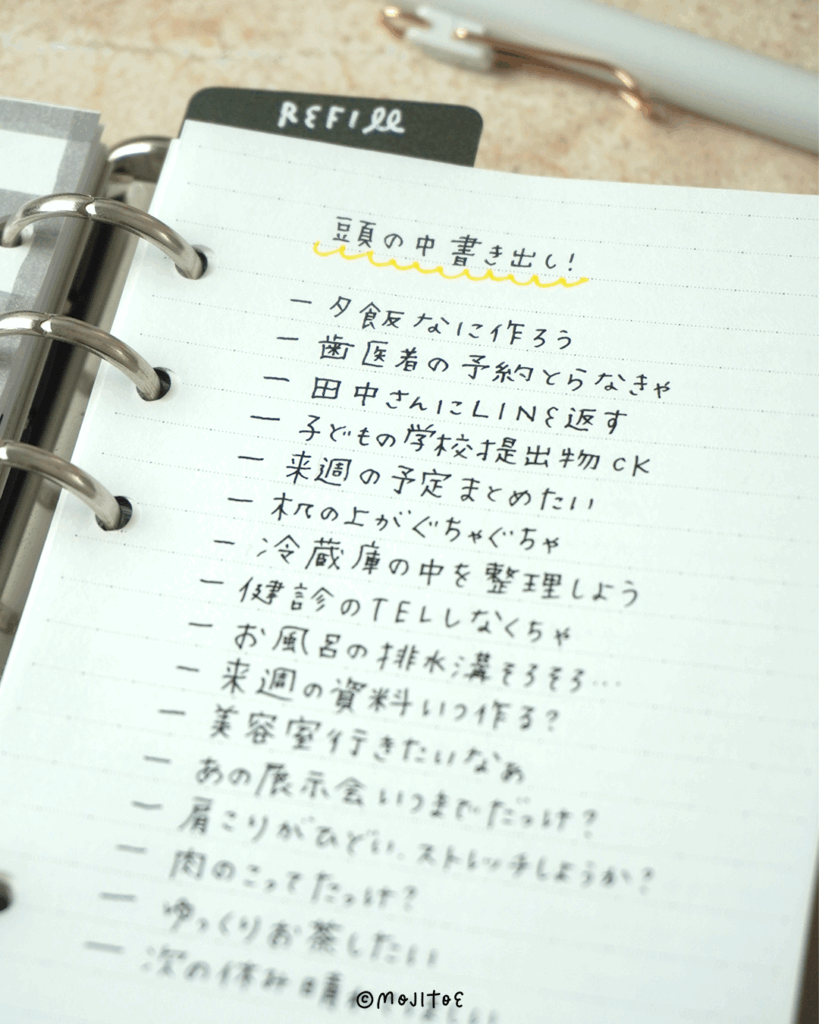 REFILL
頭の中書き出し!
－ 夕飯なに作ろう
－ 歯医者の予約とらなきゃ
－ 田中さんにLINE返す
－ 子どもの学校提出物CK
－ 来週の予定まとめたい
－ 机の上がぐちゃぐちゃ
－ 冷蔵庫の中を整理しよう
－ 健診のTELしなくちゃ
－ お風呂の排水溝そろそろ…
－ 来週の資料いつ作る?
－ 美容室行きたいなぁ
－ あの展示会いつまでだっけ?
－ 肩こりがひどい、ストレッチしようか?
－ 肉のこってたっけ?
－ ゆっくりお茶したい
－ 次の休み晴
©MOJITOE